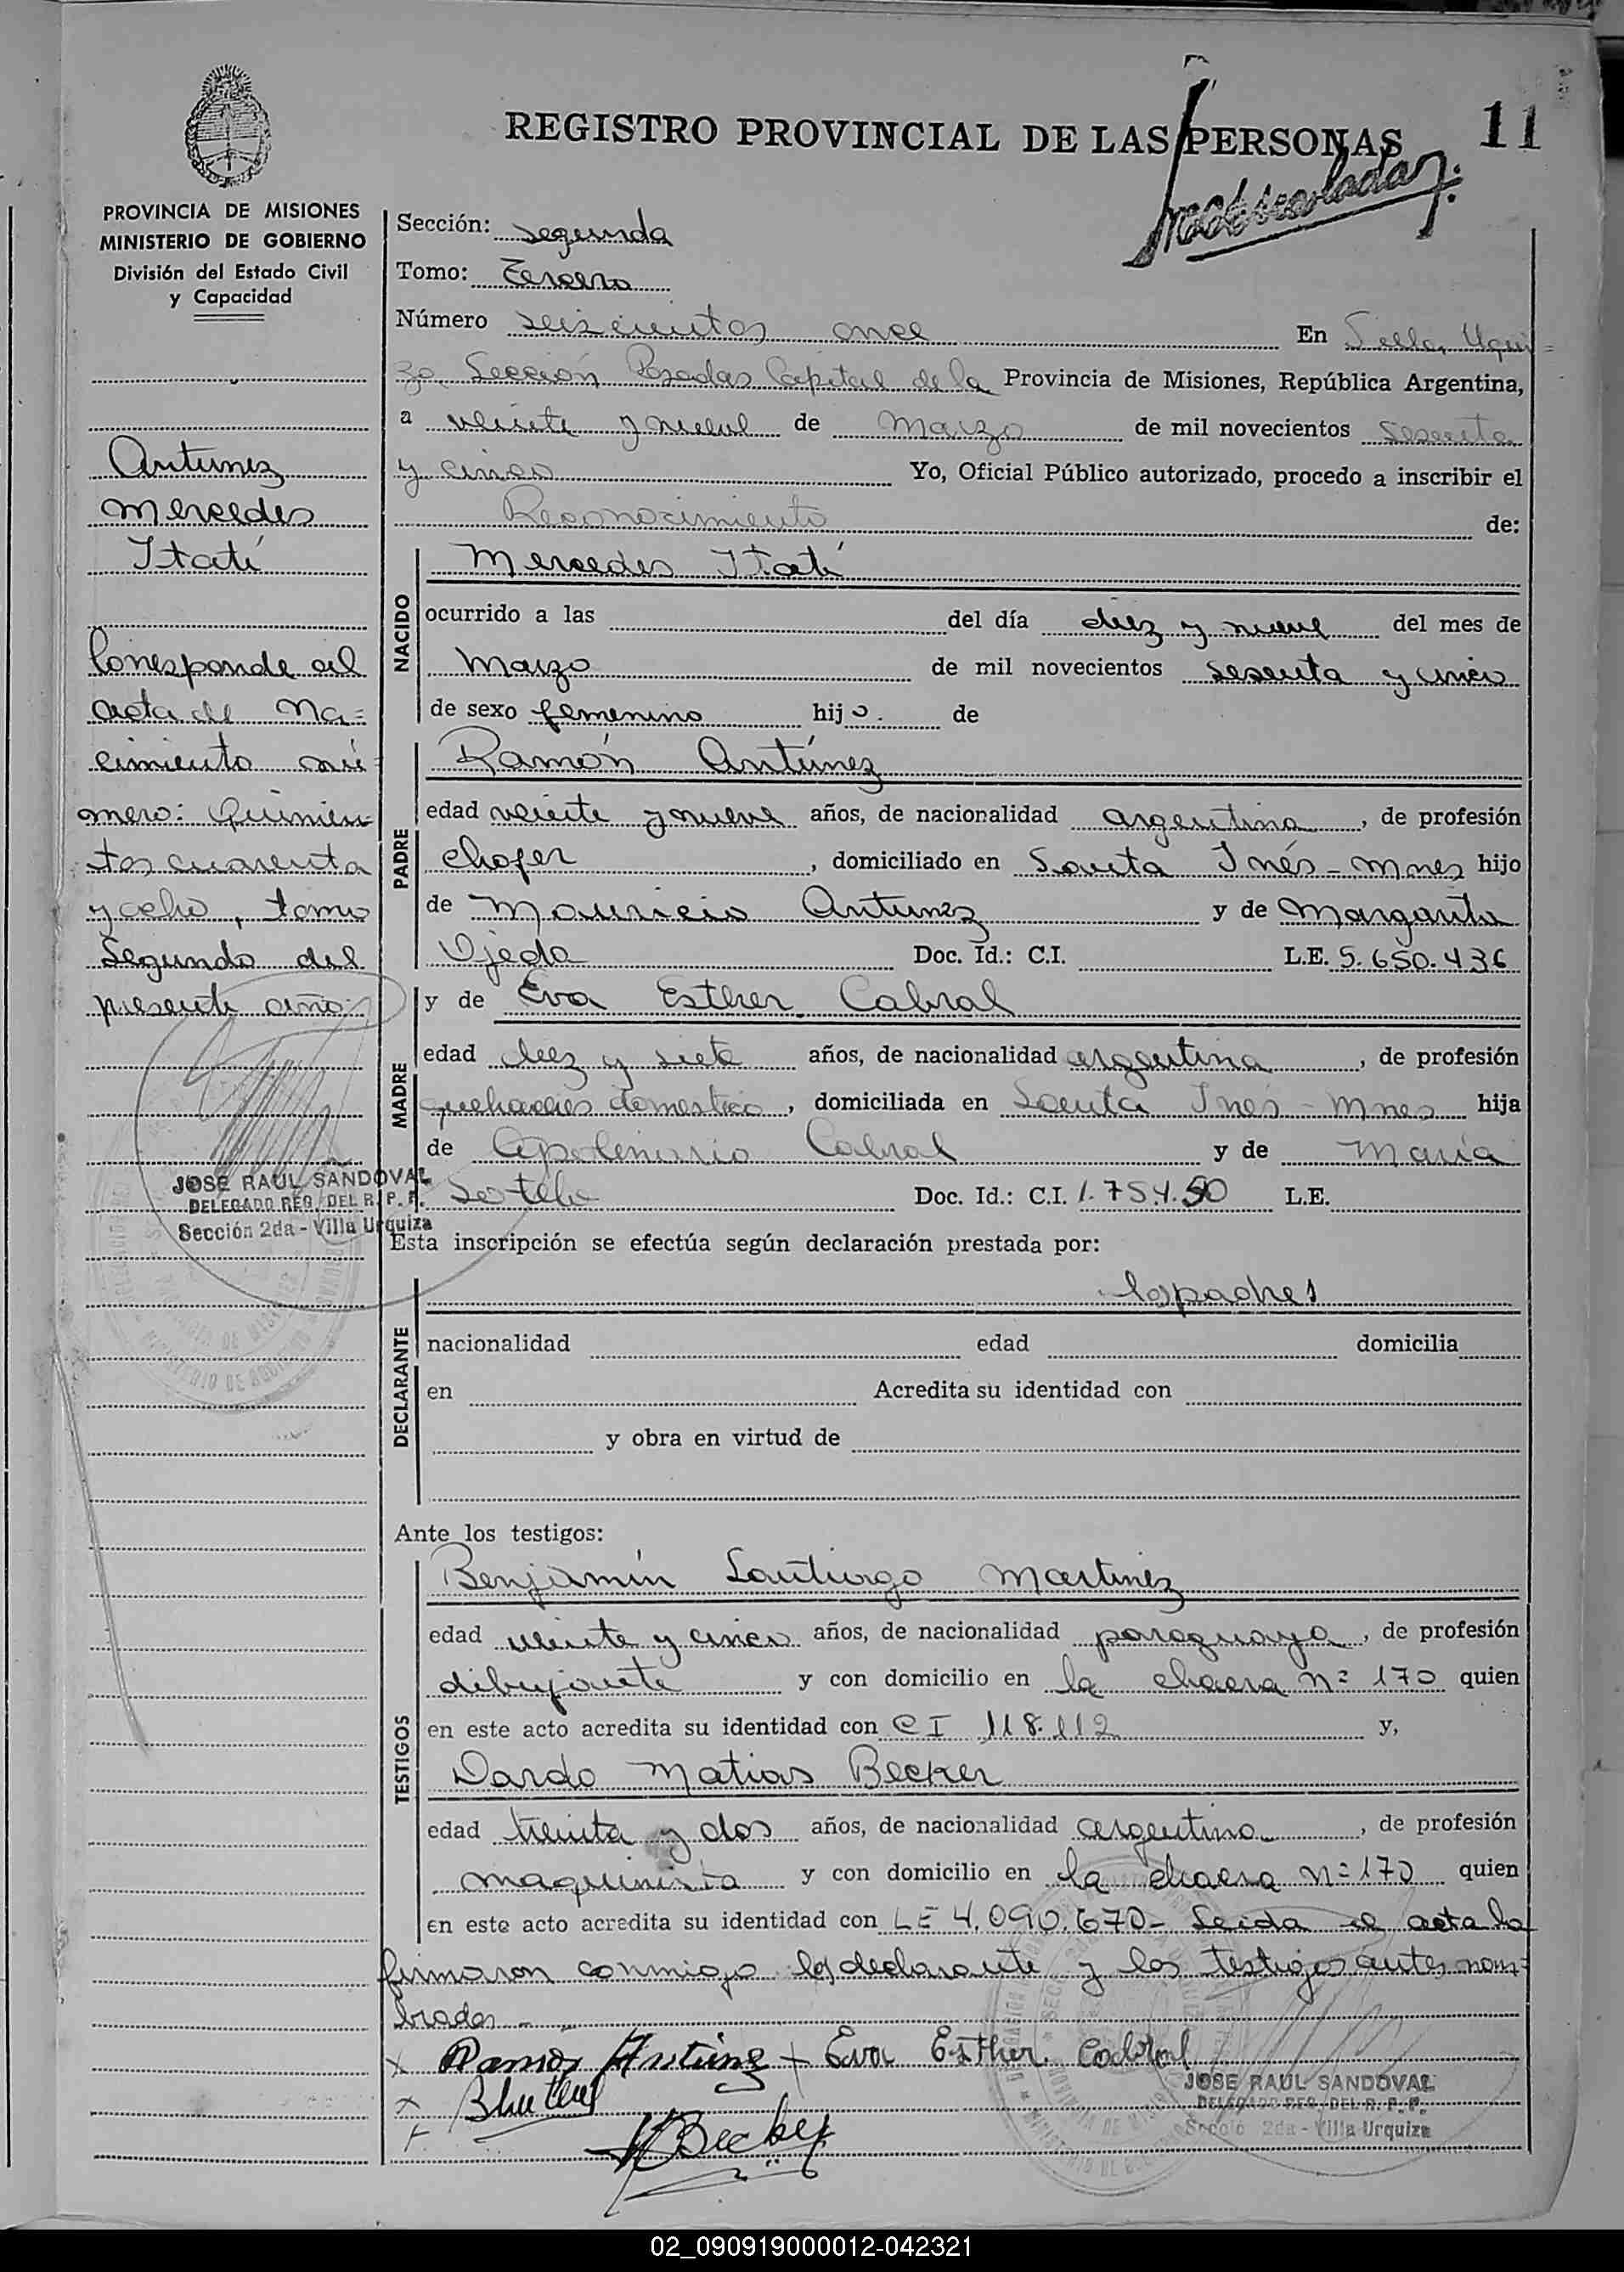 REGISTRO PROVINCIAL DE LAS PERSONAS
11
Matriculada
PROVINCIA DE MISIONES
MINISTERIO DE GOBIERNO
División del Estado Civil
y Capacidad
Antunez
Mercedes
Itatí
Corresponde al
acta de Na=
cimiento nú=
mero: Quinien=
tos cuarenta
y ocho, tomo
Segundo del
presente año
JOSE RAUL SANDOVAL
DELEGADO REG. DEL R. P. P.
Sección 2da - Villa Urquiza
Sección: segunda
Tomo: Tercero
Número seiscientos once En Villa Urqui=
za Sección Posadas Capital de la Provincia de Misiones, República Argentina,
a veinte y nueve de Marzo de mil novecientos sesenta
y cinco Yo, Oficial Público autorizado, procedo a inscribir el
Reconocimiento de:
NACIDO
Mercedes Itatí
ocurrido a las del día diez y nueve del mes de
Marzo de mil novecientos sesenta y cinco
de sexo femenino hija de
PADRE
Ramón Antúnez
edad veinte y nueve años, de nacionalidad argentina, de profesión
chofer, domiciliado en Santa Inés - Mnes hijo
de Mauricio Antunez y de Margarita
Ojeda Doc. Id.: C.I. L.E. 5.650.436
y de Eva Esther Cabral
MADRE
edad diez y siete años, de nacionalidad argentina, de profesión
quehaceres domestico, domiciliada en Santa Inés - Mnes hija
de Apolinario Cabral y de María
Sotelo Doc. Id.: C.I. L.E.
Esta inscripción se efectúa según declaración prestada por:
los padres
DECLARANTE
nacionalidad edad domicilia
en Acredita su identidad con
y obra en virtud de
Ante los testigos:
TESTIGOS
Benjamín Santiago Martinez
edad veinte y cinco años, de nacionalidad paraguaya, de profesión
dibujante y con domicilio en la chacra nº 170 quien
en este acto acredita su identidad con CI 118.112 y,
Dardo Matias Becker
edad treinta y dos años, de nacionalidad argentina, de profesión
maquinista y con domicilio en la chacra nº 170 quien
en este acto acredita su identidad con LE 4.090.670- Leida el acta la
firmaron conmigo los declarante y los testigos antes nom=
brados -
x Ramon Antúnez + Eva Esther Cabral
x
+ Becker
JOSE RAUL SANDOVAL
DELEGADO REG. DEL R. P. P.
Sección 2da - Villa Urquiza
02_090919000012-042321